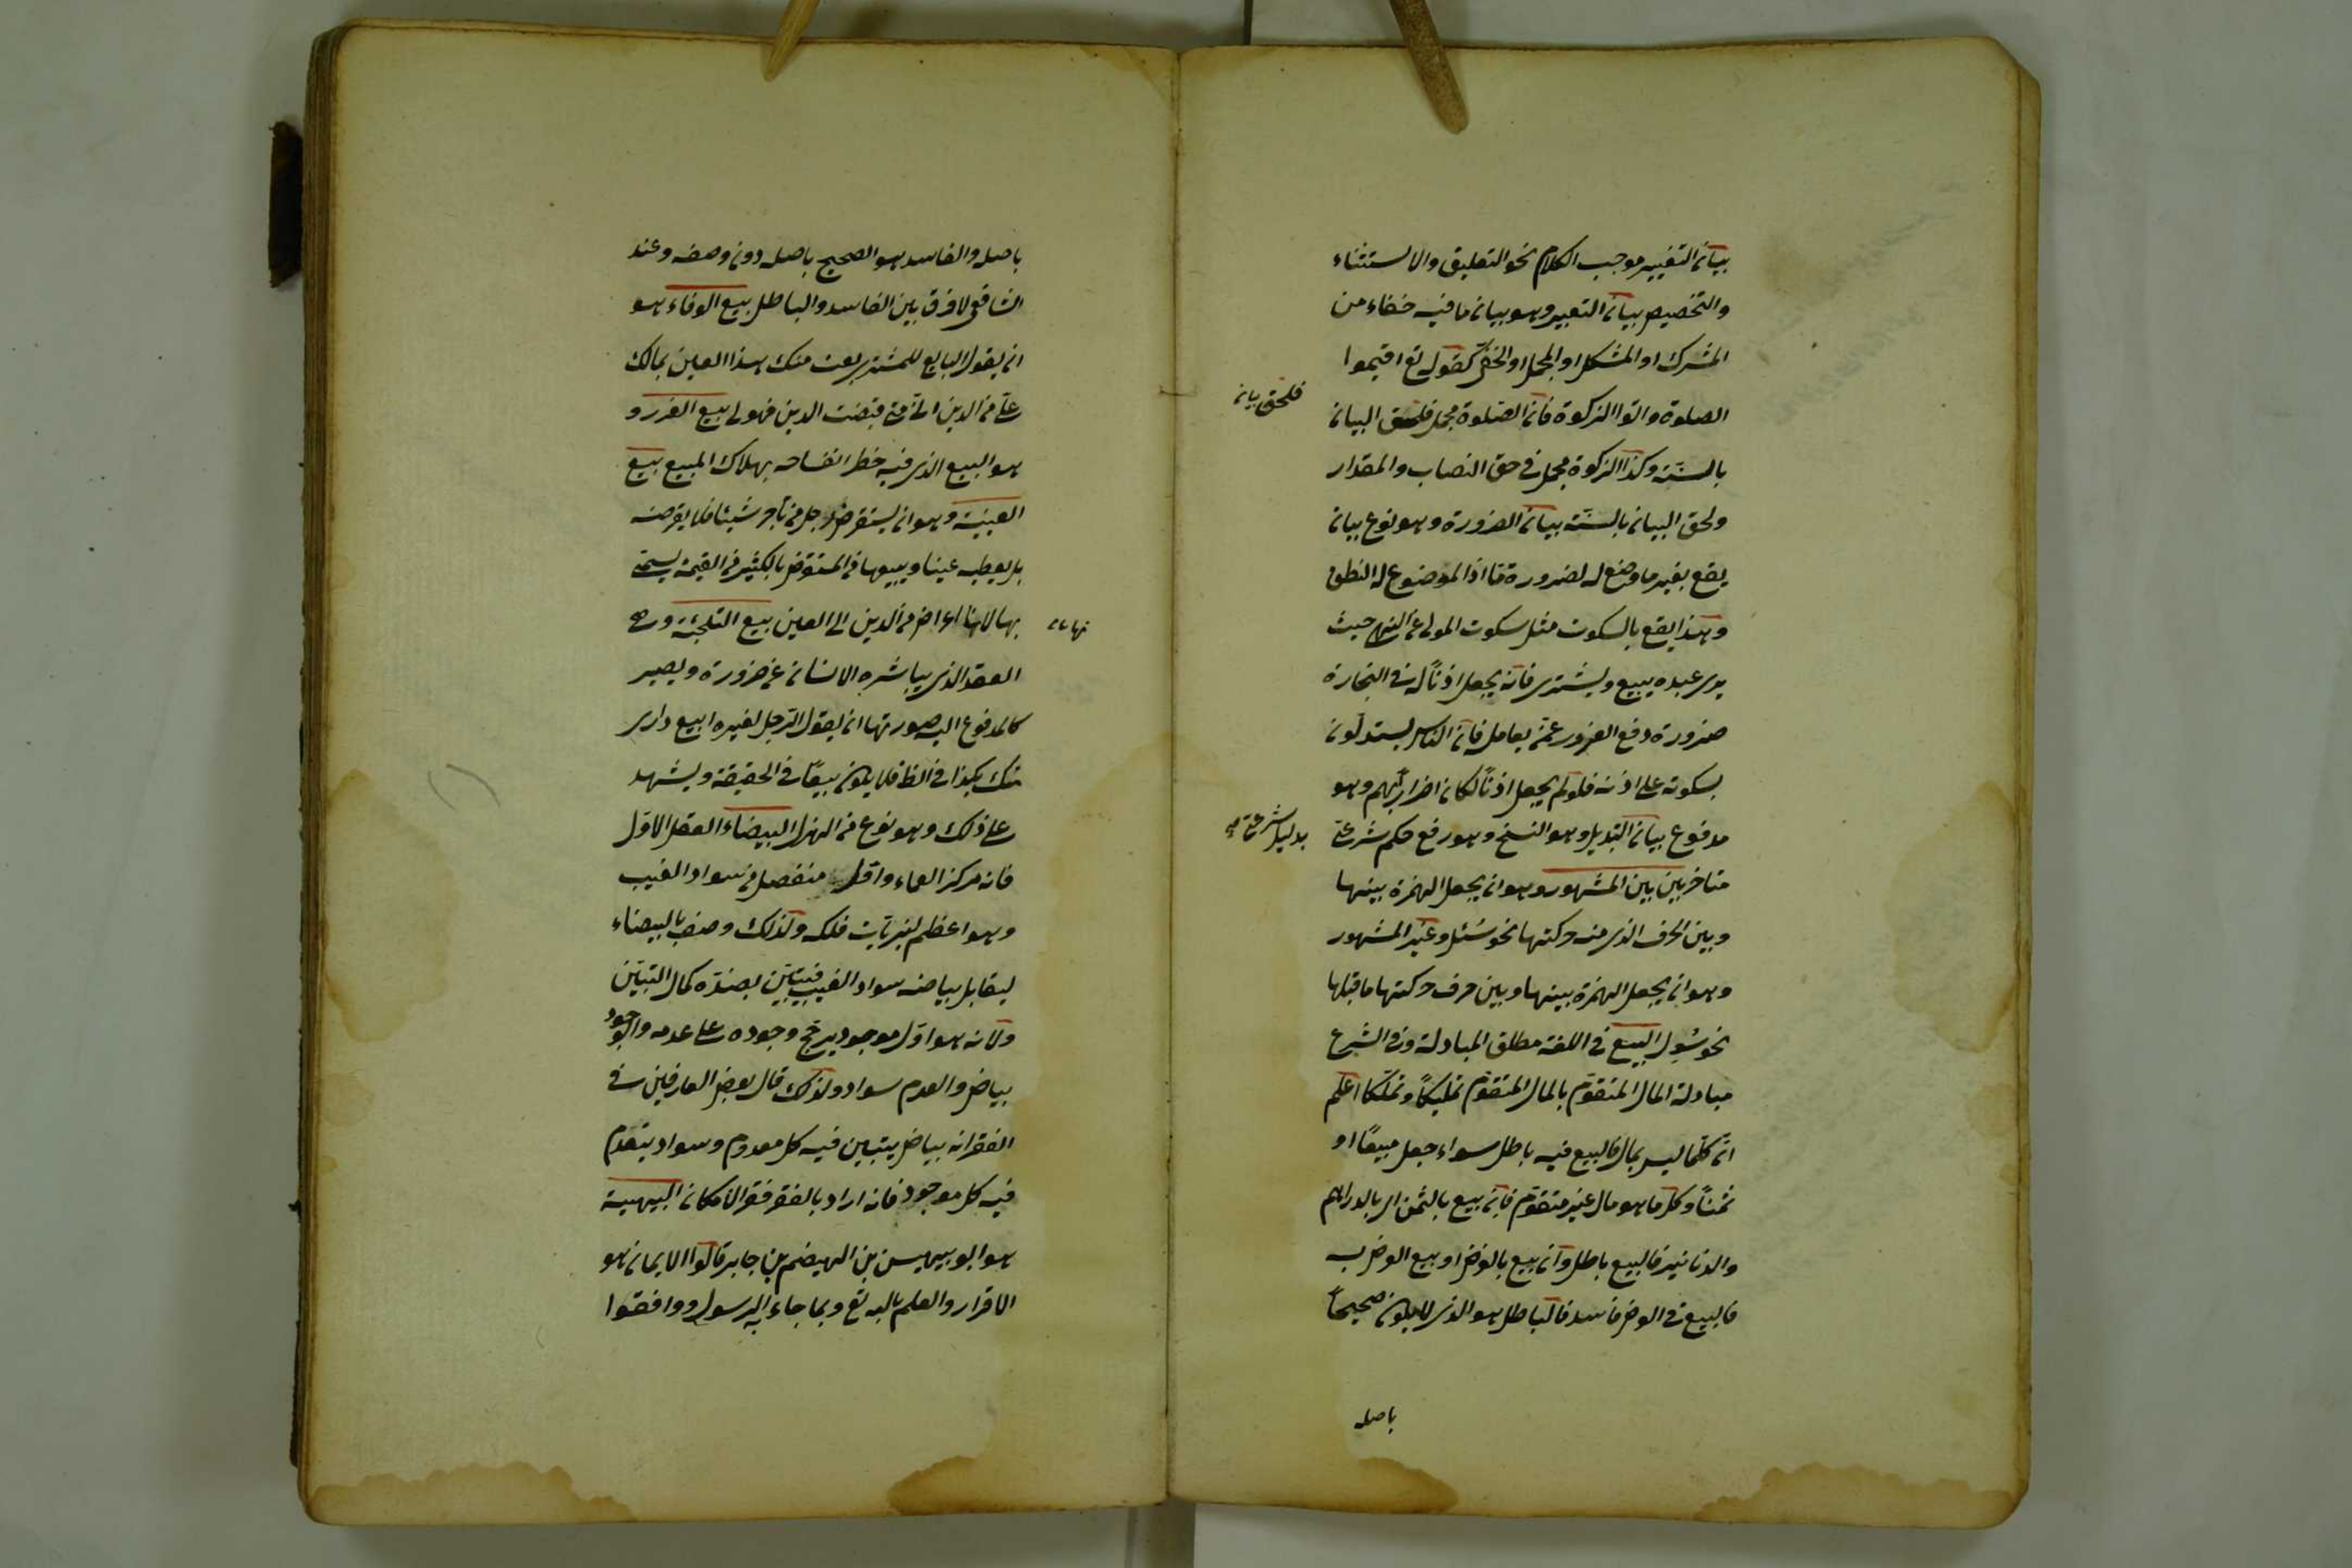 بيان التغيير موجب الكلام نحو التعليق والاستثناء
والتخصيص بيان التعبير وهو بيان ما فيه خفاء من
المشرك او المشكل او المجمل او الخفى كقوله تع اقيموا
الصلوة واتوا الزكوة فان الصلوة مجمل فلحق البيان
فلحق بيان
بالسنة وكذا الزكوة مجمل فى حق النصاب والمقدار
ولحق البيان بالسنة بيان الضرورة وهو نوع بيان
يقع بغير ما وضع له لضرورة ما اذ الموضوع له النطق
وهذا يقع بالسكوت مثل سكوت المولى عن النهى حيث
يرى عبده يبيع ويشترى فانه يجعل اذنا له فى التجارة
ضرورة دفع الغرور عمن يعامله فان الناس يستدلون
بسكوته على اذنه فلو لم يجعل اذنا لكان اضرارا بهم وهو
مدفوع بيان التبديل وهو النسخ وهو رفع حكم شرعى
بدليل شرعى
متاخر بين بين المشهور وهو ان يجعل الهمزة بينها
وبين الحرف الذى منه حركتها نحو سئل وغير المشهور
وهو ان يجعل الهمزة بينها وبين حرف حركتها ما قبلها
نحو سؤل البيع فى اللغة مطلق المبادلة وفى الشرع
مبادلة المال المتقوم بالمال المتقوم تمليكا وتملكا اعلم
ان كلما ليس بمال فالبيع فيه باطل سواء جعل مبيعا او
ثمنا وكل ما هو مال غير متقوم فان بيع بالثمن اى بالدراهم
والدنانير فالبيع باطل وان بيع بالعرض او بيع العرض به
فالبيع فى العرض فاسد فالباطل هو الذى لا يكون صحيحا
باصله
باصله والفاسد هو الصحيح باصله دون وصفه وعند
الشافعى لا فرق بين الفاسد والباطل بيع الوفاء هو
ان يقول البايع للمشترى بعت منك هذا العين بمالك
على من الدين على انى متى قبضت الدين فهو لى بيع الغرر و
هو البيع الذى فيه خطر انفساخه بهلاك المبيع بيع
العينة وهو ان يستقرض رجل من تاجر شيئا فلا يقرضه
بل يعطيه عينا ويبيعها من المستقرض بالكثير من القيمة يسمى
بها لانها اعراض من الدين الى العين بيع التلجئة وهى
العقد الذى يباشره الانسان عن ضرورة ويصير
كالمدفوع اليه صورتها ان يقول الرجل لغيره ابيع دارى
منك بكذا فى الظ فلا يكون بيعا فى الحقيقة ويشهد
على ذلك وهو نوع من الهزل البيضاء العقل الاول
فانه مركز العماء واول منفصل من سواد الغيب
وهو اعظم نيرات فلكه ولذلك وصف بالبيضاء
ليقابل بياضه سواد الغيب فيتبين بضده كمال التبين
ولانه هو اول موجود يرجح وجوده على عدمه والوجود
بياض والعدم سواد ولذلك قال بعض العارفين فى
الفقر انه بياض يتبين فيه كل معدوم وسواد ينعدم
فيه كل موجود فانه اراد بالفقر فقر الامكان البيهسية
هو ابو بيهس بن الهيضم بن جابر قالوا الايمان هو
الاقرار والعلم بالله تع وبما جاء به الرسول ووافقوا